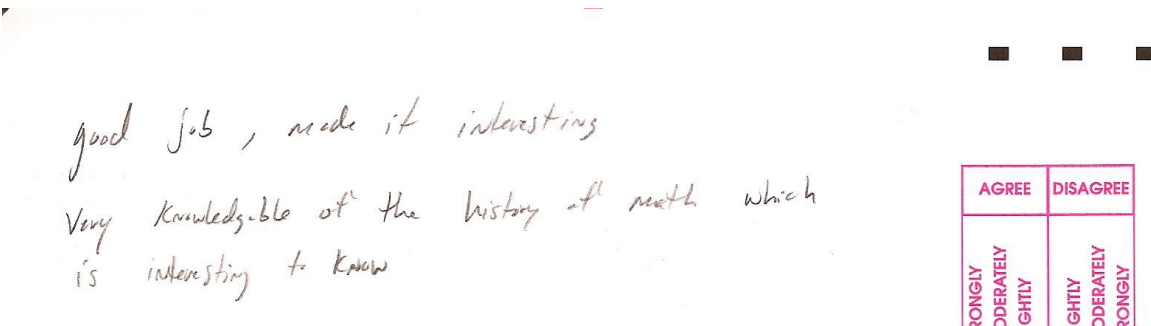 good job, made it interesting
Very knowledgable of the history of math which
is interesting to know
AGREE DISAGREE
MODERATELY
MODERATELY